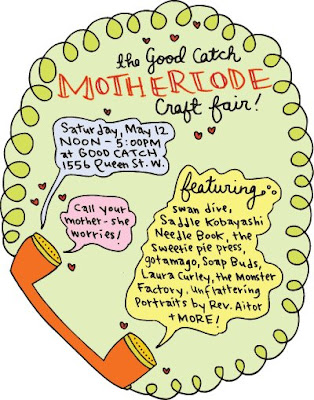 the Good Catch
MOTHERLODE
Craft fair!
Saturday, May 12
NOON - 5:00PM
at GOOD CATCH
1556 Queen St. W.
Call your
mother - she
worries!
featuring...
swan dive,
Saddle Kobayashi
Needle Book, the
sweetie pie press,
gotamago, Soap Buds,
Laura Curley, the Monster
Factory, Unflattering
Portraits by Rev. Aitor
+ MORE!